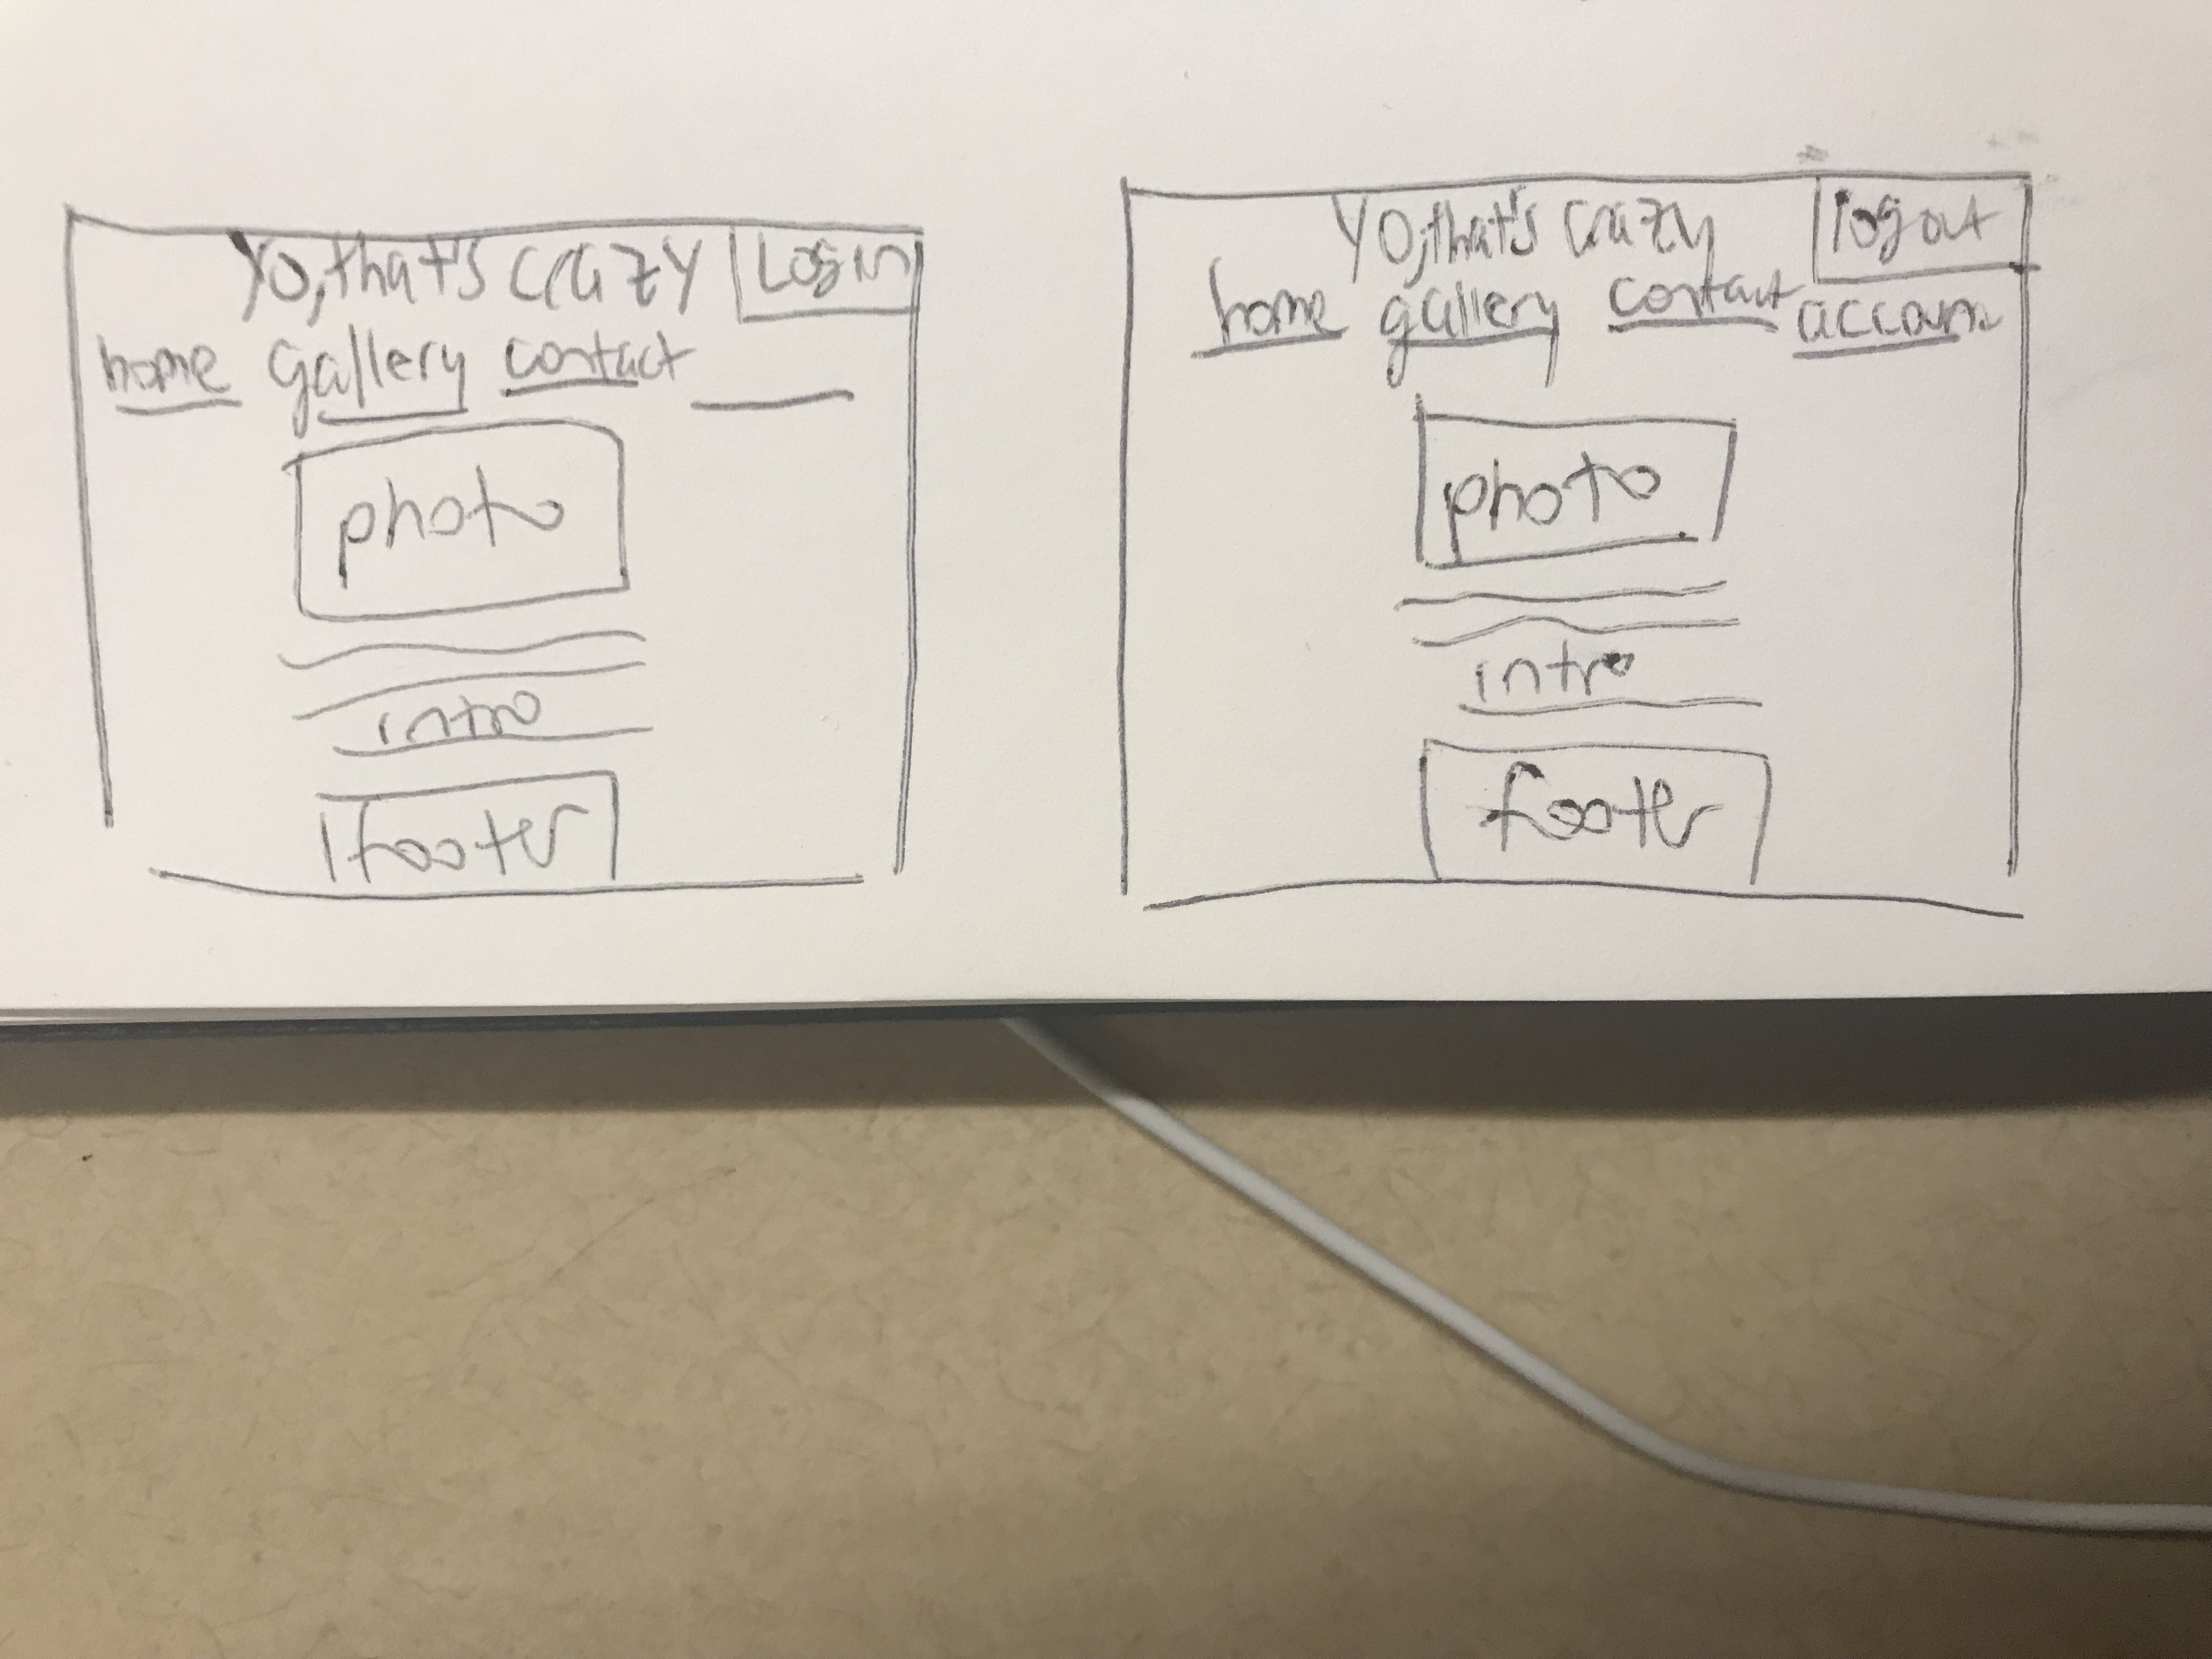 Yo, that's crazy Login
home gallery contact
photo
intro
footer
Yo, that's crazy logout
home gallery contact accoun
photo
intro
footer